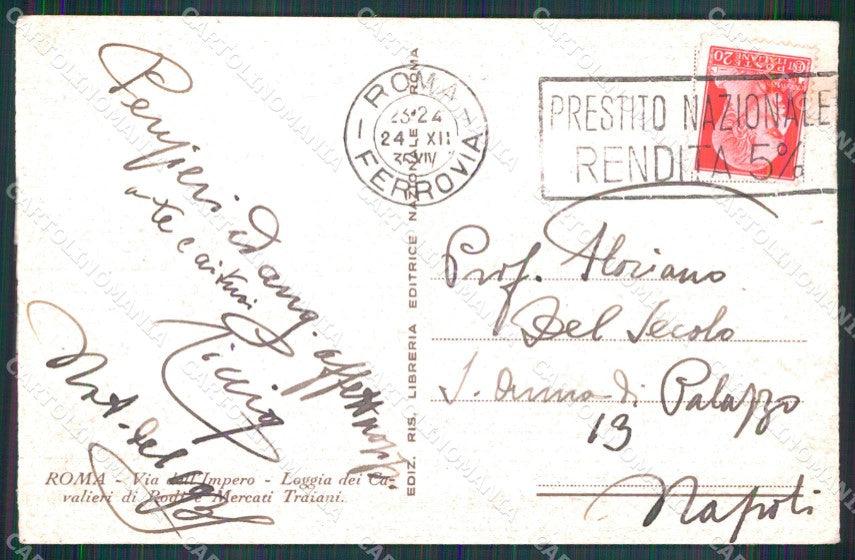 Pensieri ed aug. affettuosi
a te e ai tuoi
Nat. del 1935
ROMA - Via dell'Impero - Loggia dei Ca-
valieri di Rodi e Mercati Traiani.
EDIZ. RIS. LIBRERIA EDITRICE NAZIONALE - ROMA
ROMA
23·24
24 XII
35 XIV
FERROVIA
PRESTITO NAZIONALE
RENDITA 5%
POSTE ITALIANE
CENT 20
Prof. Floriano
Del Secolo
S. Anna di Palazzo
13
Napoli
CARTOLINOMANIA